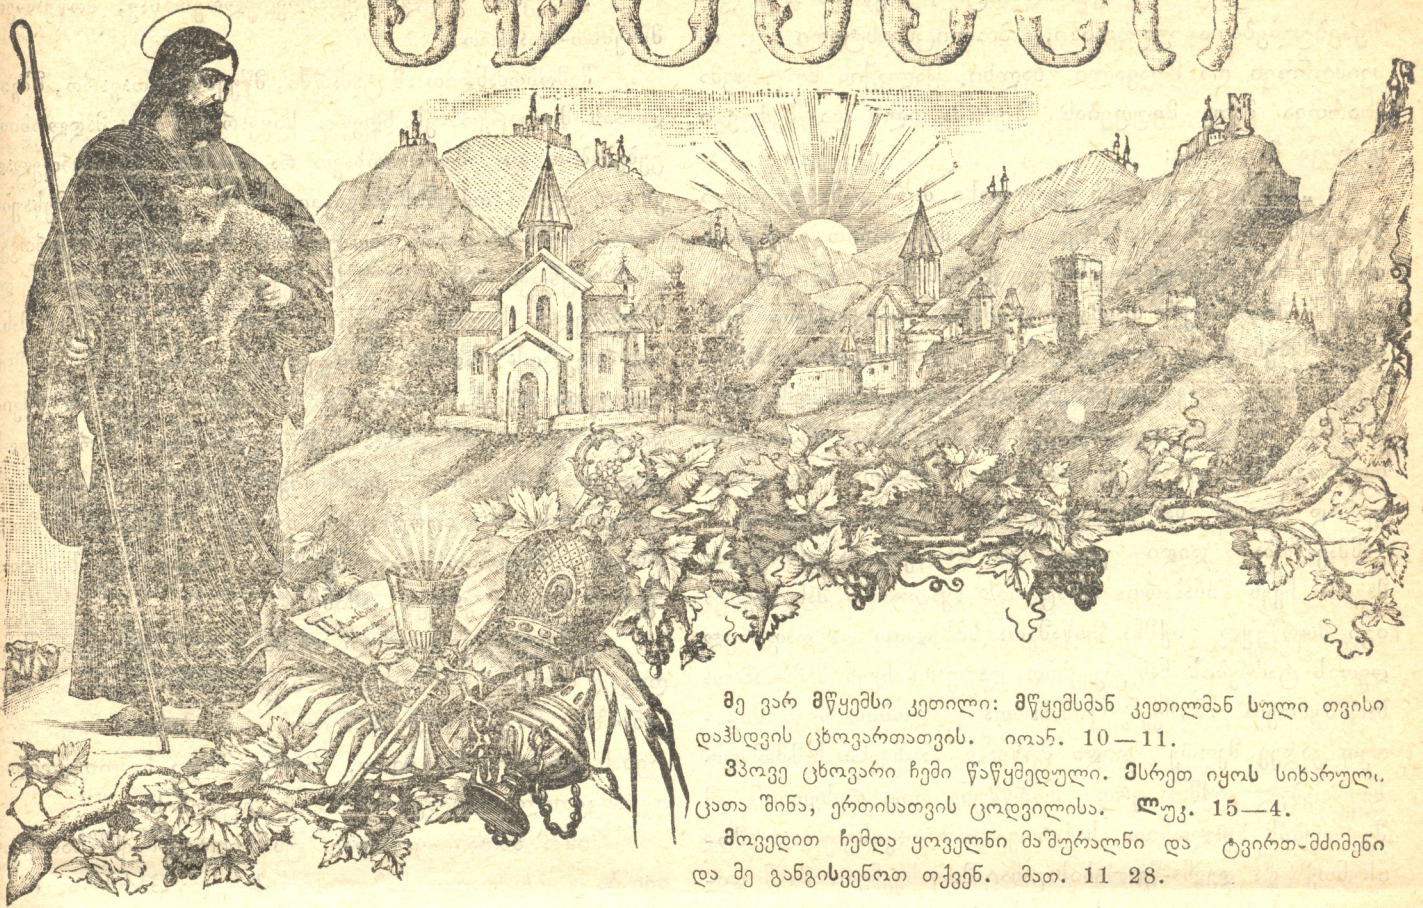 მე ვარ მწყემსი კეთილი: მწყემსმან კეთილმან სული თვისი
დაჰსდვის ცხოვართათვის. იოან. 10—11.
ვპოვე ცხოვარი ჩემი წაწყმედული. ესრეთ იყოს სიხარული
ცათა შინა, ერთისათვის ცოდვილისა. ლუკ. 15—4.
მოვედით ჩემდა ყოველნი მაშურალნი და ტვირთ-მძიმენი
და მე განგისვენოთ თქვენ. მათ. 11 28.